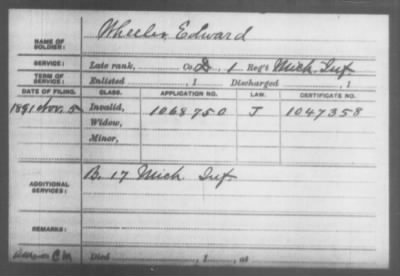 NAME OF SOLDIER: Wheeler Edward
SERVICE: Late rank, Co. D, 1 Reg't Mich. Inf.
TERM OF SERVICE: Enlisted , 1 Discharged , 1
DATE OF FILING. CLASS. APPLICATION NO. LAW. CERTIFICATE NO.
1891 Nov. 5 Invalid, 1068750 J 1047358
Widow,
Minor,
ADDITIONAL SERVICES: B. 17 Mich. Inf.
REMARKS:
C M Died , 1 , at